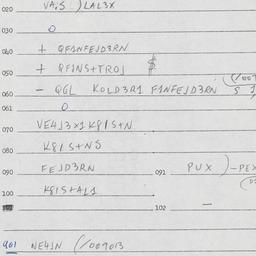 020 VA,S )LAL3X
030 O
040 + QFANNFEJD3RN
050 + QFINS+TROJ $
060 - QGL KOLD3R1 FANFEJD3RN S
061 O
070 VE4J3X1K8/S+N
080 K8/S+NS
FEJD3RN 091 PUX )-PEX
090
100 K8/S+AL1
102 —
901 NE4JN (/009013